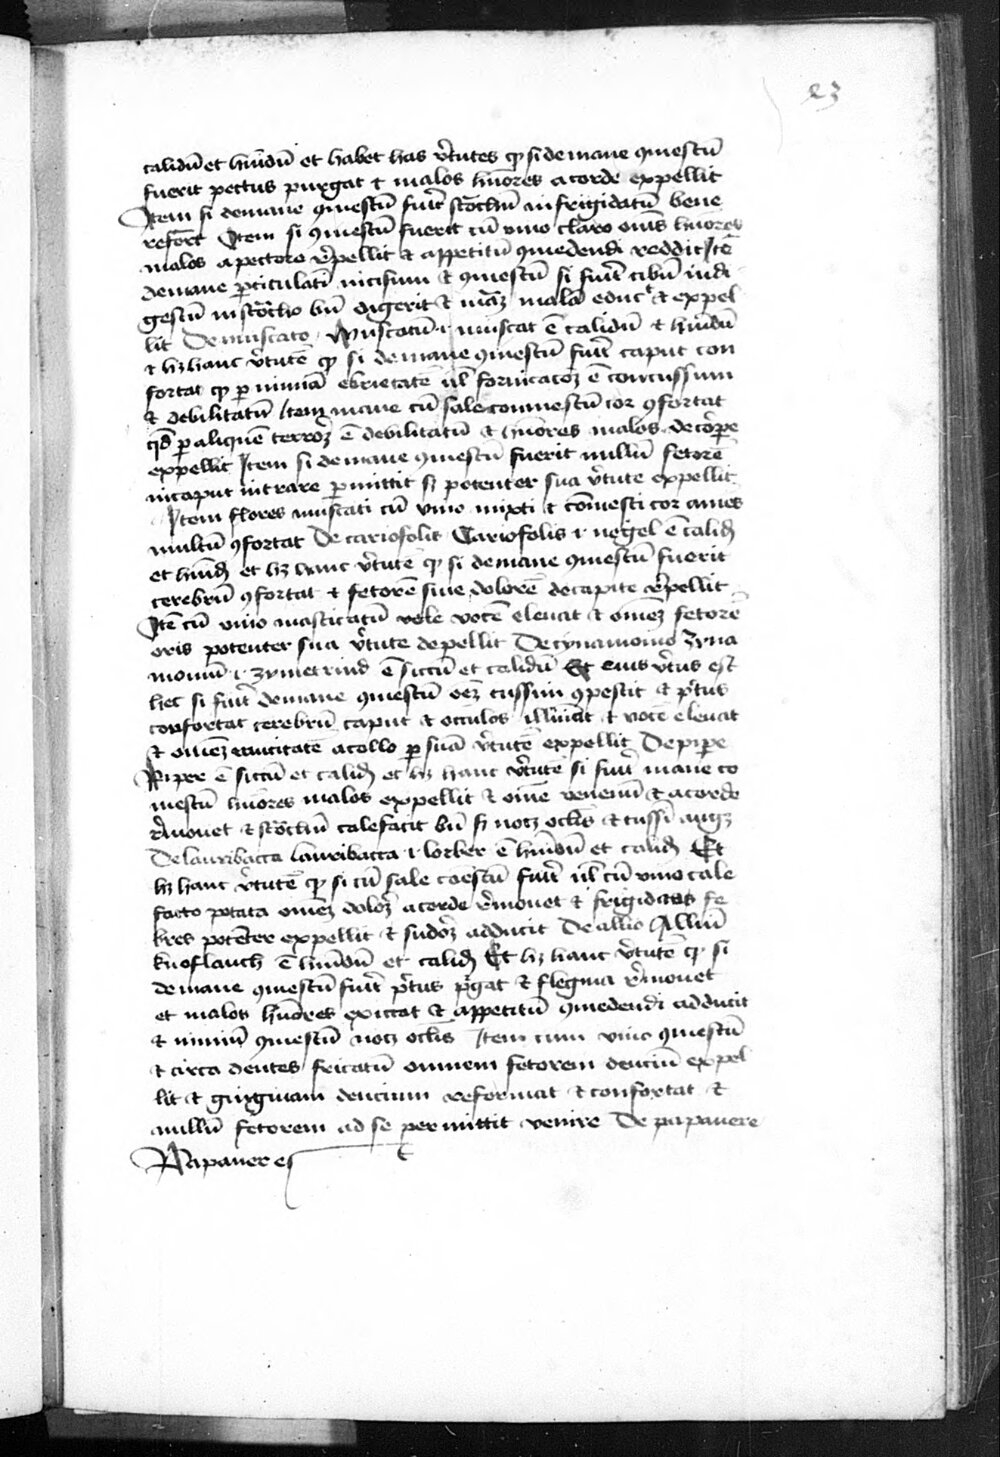 23
calidū et humidū et habet has v̓tutes qͥ si de mane ꝯmestū
fuerit pectus purgat et malos hūores a corde expellit
Item si de mane ꝯmestū fuīt stōchū infrigidatū bene
refort̄ Item si ꝯmestū fuerit cū vino claro om̄s hūores
malos a pectore r̓pellit et appetitū ꝯmedendi reddit Itē
de mane ꝑticulatī incisum et ꝯmestū si fuīt cibū indi
gestū in stōcho bn̄ digerit et mām mala educit et expel
lit De muscato Muscatū .i. muscat ē calidū et humidū
et hꝫ hanc v̓tutē qͥ si de mane ꝯmestū fuīt caput con
fortat qͥ ꝑ nimiā ebrietatē ul̄ fornicacōꝫ ē concussum
et debilitatū Item mane cū sale commestū cor ꝯfortat
qd̄ ꝑ aliquē terrorē ē debilitatū et hūores malos de corꝑe
expellit Item si de mane ꝯmestū fuerit nullū fetorē
in caput intrare ꝑmittit sꝫ potenter sua v̓tute expellit
Item flores muscati cū vino mixti et cōmesti cor
multū ꝯfortat De cariofolis Cariofolis .i. negel ē calid̄
et humid̄ et hꝫ hanc v̓tutē qͥ si de mane ꝯmestū fuerit
cerebrū ꝯfortat et fetorē siue dolorē de capite r̓pellit
Itē cū vino masticatū vocē eleuat et omnē fetorē
oris potenter sua v̓tute depellit De cynamomo Zyna
momū .i. zymetrind ē siccū et calidū Et eius v̓tus est
hec si fuīt de mane ꝯmestū oēꝫ tussim ꝯpescit et pc̄tus
confortat cerebrū caput et occulos illūīat et vocē eleuat
et omnē raucitatē a collo ꝑ suā v̓tutē expellit De piꝑe
Piper ē siccū et calid̄ et hꝫ hanc v̓tutē si fuīt mane co
mestū hūores malos expellit et omnē venenū et a corde
r̓mouet et stōchū calefacit bn̄ sꝫ nocꝫ oclīs et tussī augꝫ
De lauribacca Lauribacca .i. lorber ē humidū et calid̄ Et
hꝫ hanc v̓tutē qͥ si cū sale coēstū fuīt ul̄ cū vino cale
facto potata omnē dolorē a corde r̓mouet et frigiditas fe
bres potenter expellit et sudorē adducit De allio Alliū
knoflauch ē humidū et calid̄ Et hꝫ hanc v̓tutē qͥ si
de mane ꝯmestū fuīt pc̄tus pͥgat et flegma r̓mouet
et malos hūores exictat et appetitū ꝯmedendi adducit
et nimiū ꝯmestū nocꝫ oclīs Item cum vino ꝯmestū
et circa dentes fricatū omnem fetorem denciū expel
lit et gingiuam dencium reformat et confortat et
nullū fetorem ad se permittit venire De papauere
Papauer es